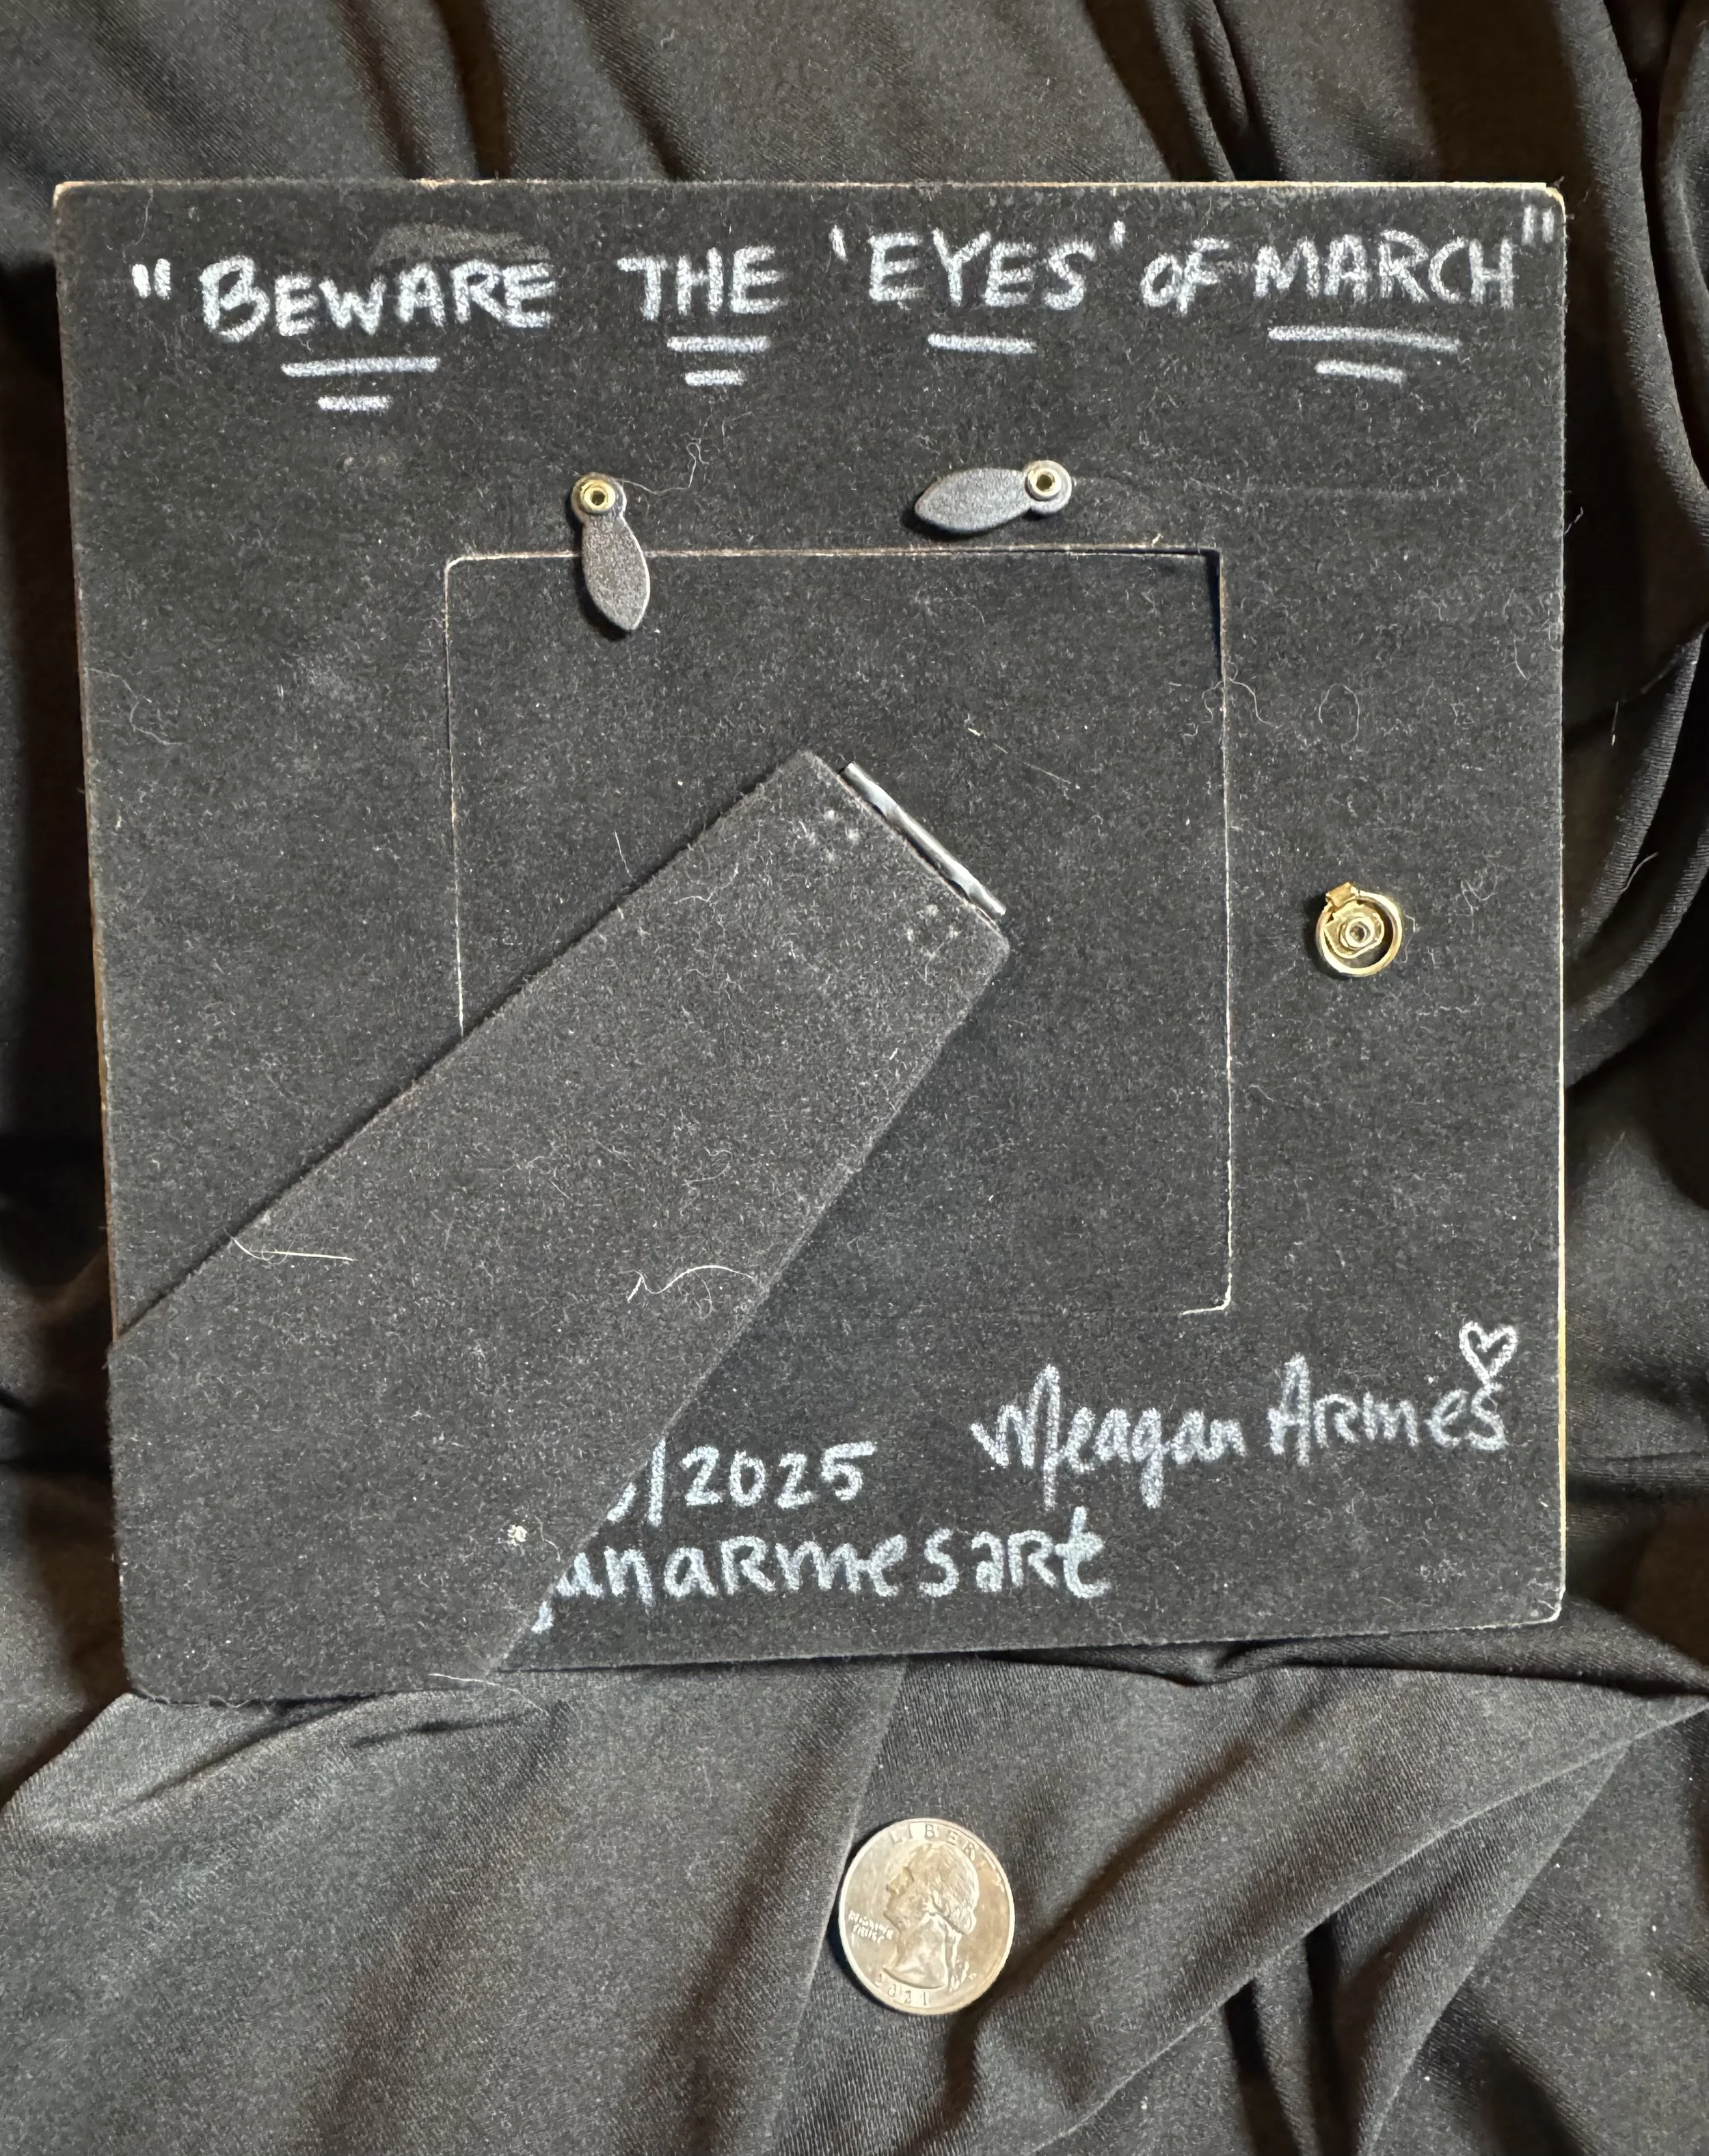 "BEWARE THE 'EYES' OF MARCH"
Meagan Armes
/2025
anarmesart
LIBERTY
IN GOD WE
TRUST
2021